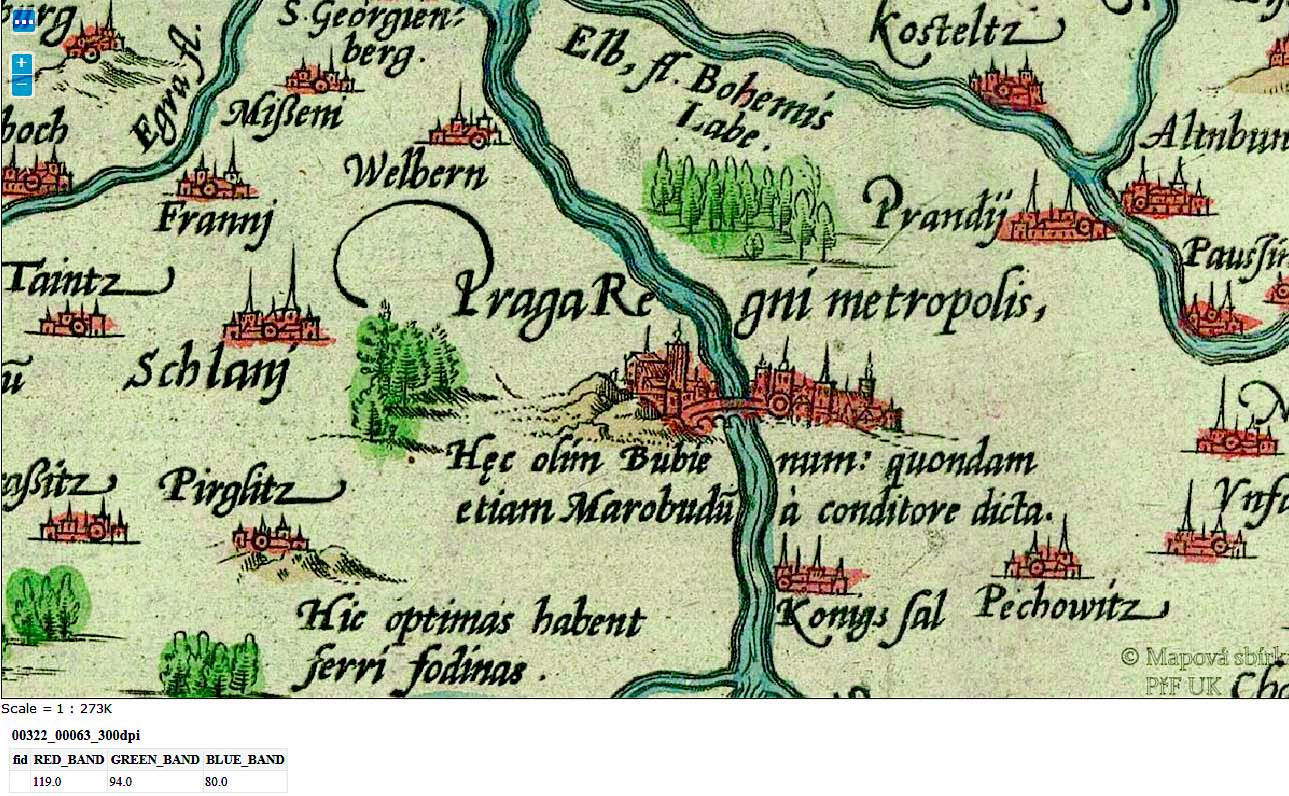 S. Georgien-
berg.
Kosteltz
Egra fl.
Elb, fl. Bohemis
Labe.
Mißeni
Altnbun
hoch
Welbern
Frannj
Prandij
Taintz
Praga Regni metropolis,
Schlanj
Hęc olim Bubienum: quondam
etiam Marobudū à conditore dicta.
Pirglitz
Hic optimas habent
ferri fodinas.
Konigs sal
Pechowitz
© Mapová sbírk
PřF UK
Scale = 1 : 273K
00322_00063_300dpi
fid RED_BAND GREEN_BAND BLUE_BAND
119.0 94.0 80.0